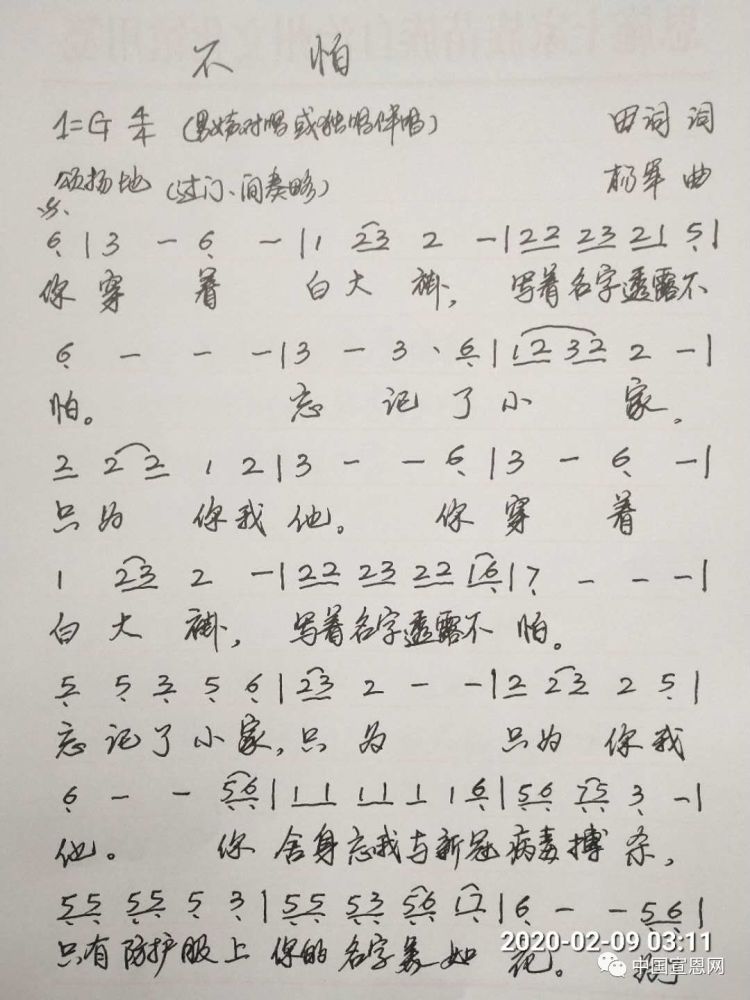 不 怕
1=G 4/4 (男女声对唱或独唱伴唱) 田词 词
颂扬地 (过门、间奏略) 杨军 曲
6 | 3 - 6 - | 1 23 2 - | 22 23 21 5 |
你 穿 着 白 大 褂, 写着名字透露不
6 - - - | 3 - 3 · 6 | 12 32 2 - |
怕。 忘 记 了 小 家,
2 2 2 1 2 | 3 - - 6 | 3 - 6 - |
只 为 你 我 他。 你 穿 着
1 23 2 - | 22 23 22 16 | 7 - - - |
白 大 褂, 写着名字透露不 怕。
5 5 3 5 6 | 23 2 - - | 2 23 2 5 |
忘 记 了 小 家, 只 为 只为 你 我
6 - - 56 | 11 11 1 1 6 | 56 75 3 - |
他。 你 舍身忘我与新冠 病毒搏 杀,
55 55 5 3 | 55 53 56 17 | 6 - - 56 |
只有 防护 服 上 你的 名字 美 如 花。
2020-02-09 03:11
中国宣恩网